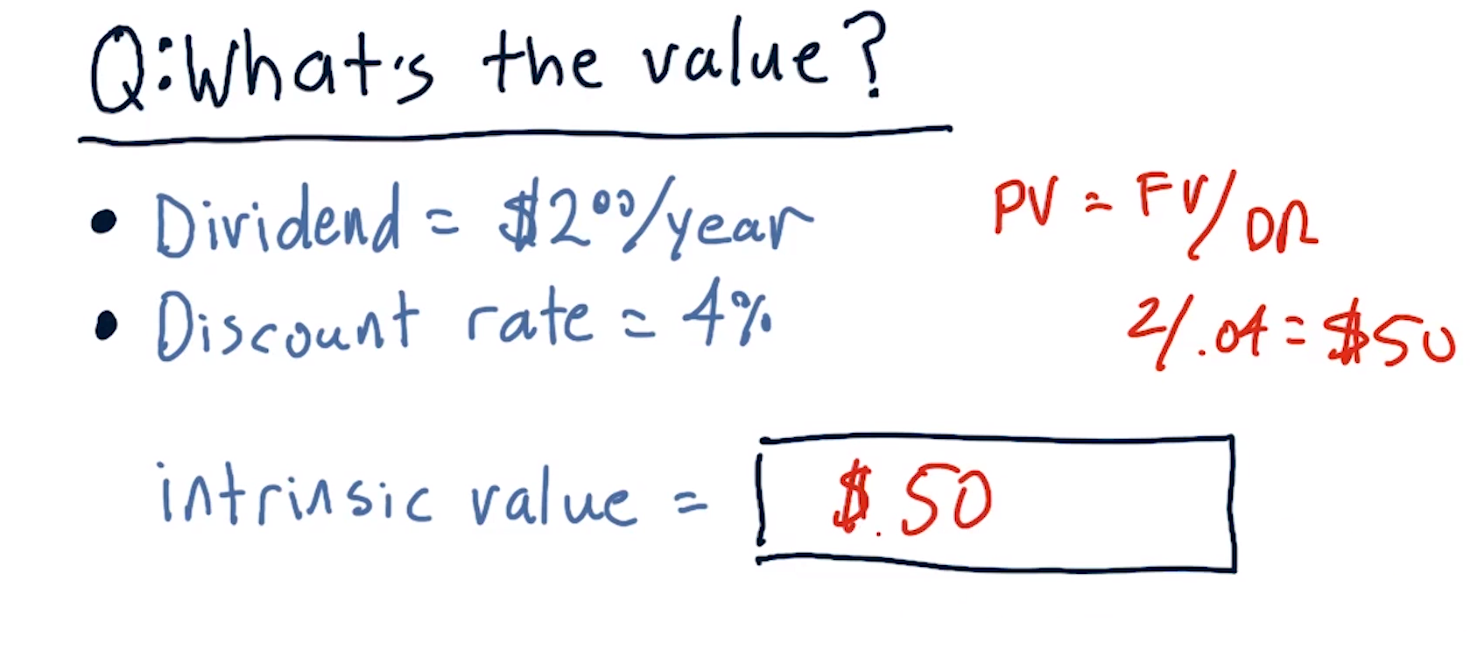 Q: What's the value?
• Dividend = $2⁰⁰/year
PV = FV/DR
• Discount rate = 4%
2/.04 = $50
intrinsic value = $.50